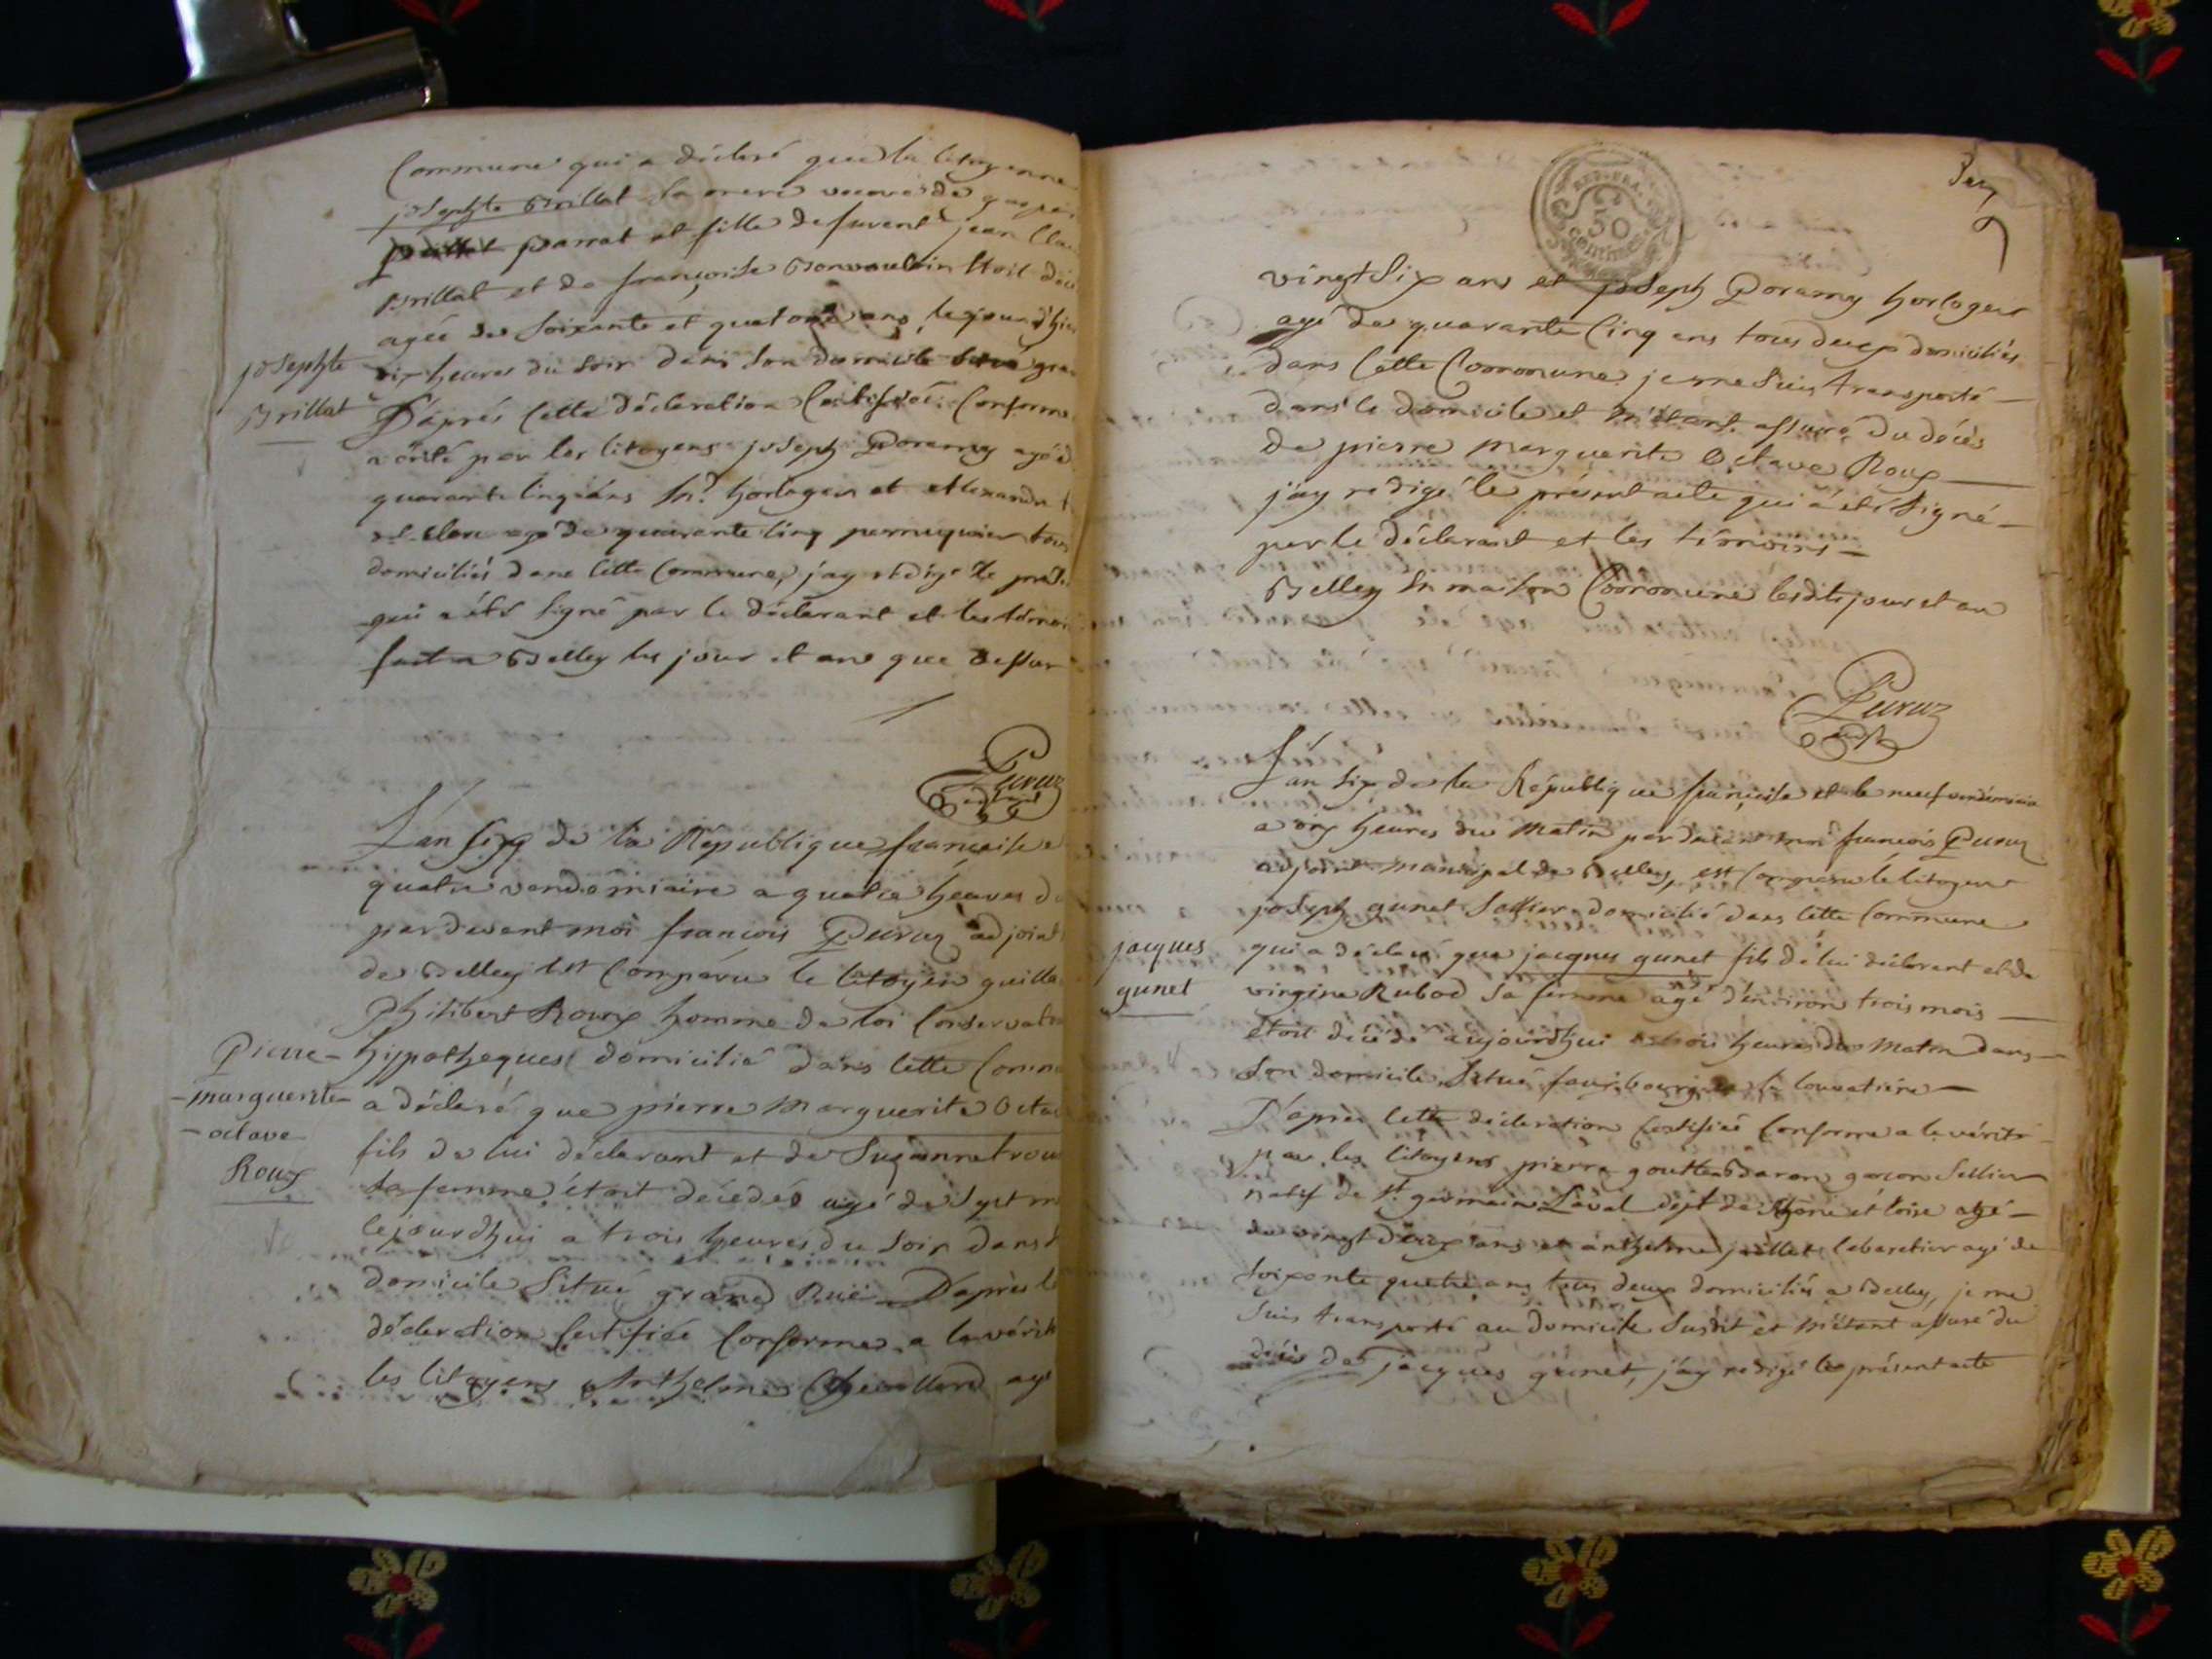 Commune qui a déclaré que la Citoyenne
josephte Brillat sa mere veuve de gaspar
parrat et fille de furent jean Clau
Brillat et de françoise Bonvaulain étoit déce
agée de soixante et quatorze ans, le jour d'hier
six heures du soir dans son domicile gra
josephte
Brillat
D'après Cette déclaration Certifiée Conforme
a vérité par les Citoyens joseph Doramy agé d
quarante Cinq ans horloger et Alexandre
agé de quarante Cinq perruquier tous
domiciliés dans Cette Commune, j'ay rédigé le prés
qui a été signé par le déclarant et les témoi
fait a Belley les jour et an que dessus
Peruz
adjoint
L'an six de la République française e
quatre vendémiaire a quatre heures d
par devant moi françois Peruz adjoint
de Belley est Comparu le Citoyen guilla
Philibert Roux homme de loi Conservate
hypotheques domicilié dans Cette Comm
a déclaré que pierre Marguerite Octa
fils de lui déclarant et de Suzanne trou
sa femme étoit décédé agé de sept m
Cejourdhui a trois heures du soir dans
domicile Situé grand Rue D'après l
déclaration Certifiée Conforme a la vérit
les Citoyens Anthelme Chevillard agé
Pierre
marguerite
octave
Roux
REP. FRA.
50
centimes
vingt Six ans et joseph Doramy horloger
agé de quarante Cinq ans tous deux domiciliés
dans Cette Commune je me suis transporté
dans le domicile et m'étant assuré du décès
de pierre marguerite Octave Roux
j'ay redigé le présent acte qui a été signé
par le déclarant et les témoins
Belley en maison Commune lesdits jour et an
Peruz
L'an six de la République française et le neuf vendémiaire
a dix heures du Matin par devant moi françois Peruz
adjoint municipal de Belley, est Comparu le Citoyen
joseph gunet Sellier domicilié dans Cette Commune
jacques
gunet
qui a déclaré que jacques gunet fils de lui déclarant et de
virgine Rubod sa femme agé d'environ trois mois
étoit décédé aujourdhui a trois heures du Matin dans
son domicile Situé fauxbourg de la louvatiere
D'après Cette déclaration Certifiée Conforme a la vérité
par les Citoyens pierre goutte garcon Sellier
natif de St. germain Laval dépt de Rhone et loire agé
de vingt deux ans et anthelme juillet Cabaretier agé de
soixante quatre ans tous deux domiciliés a Belley, je me
suis transporté au domicile Susdit et m'étant assuré du
décès de jacques gunet, j'ay redigé le présent acte